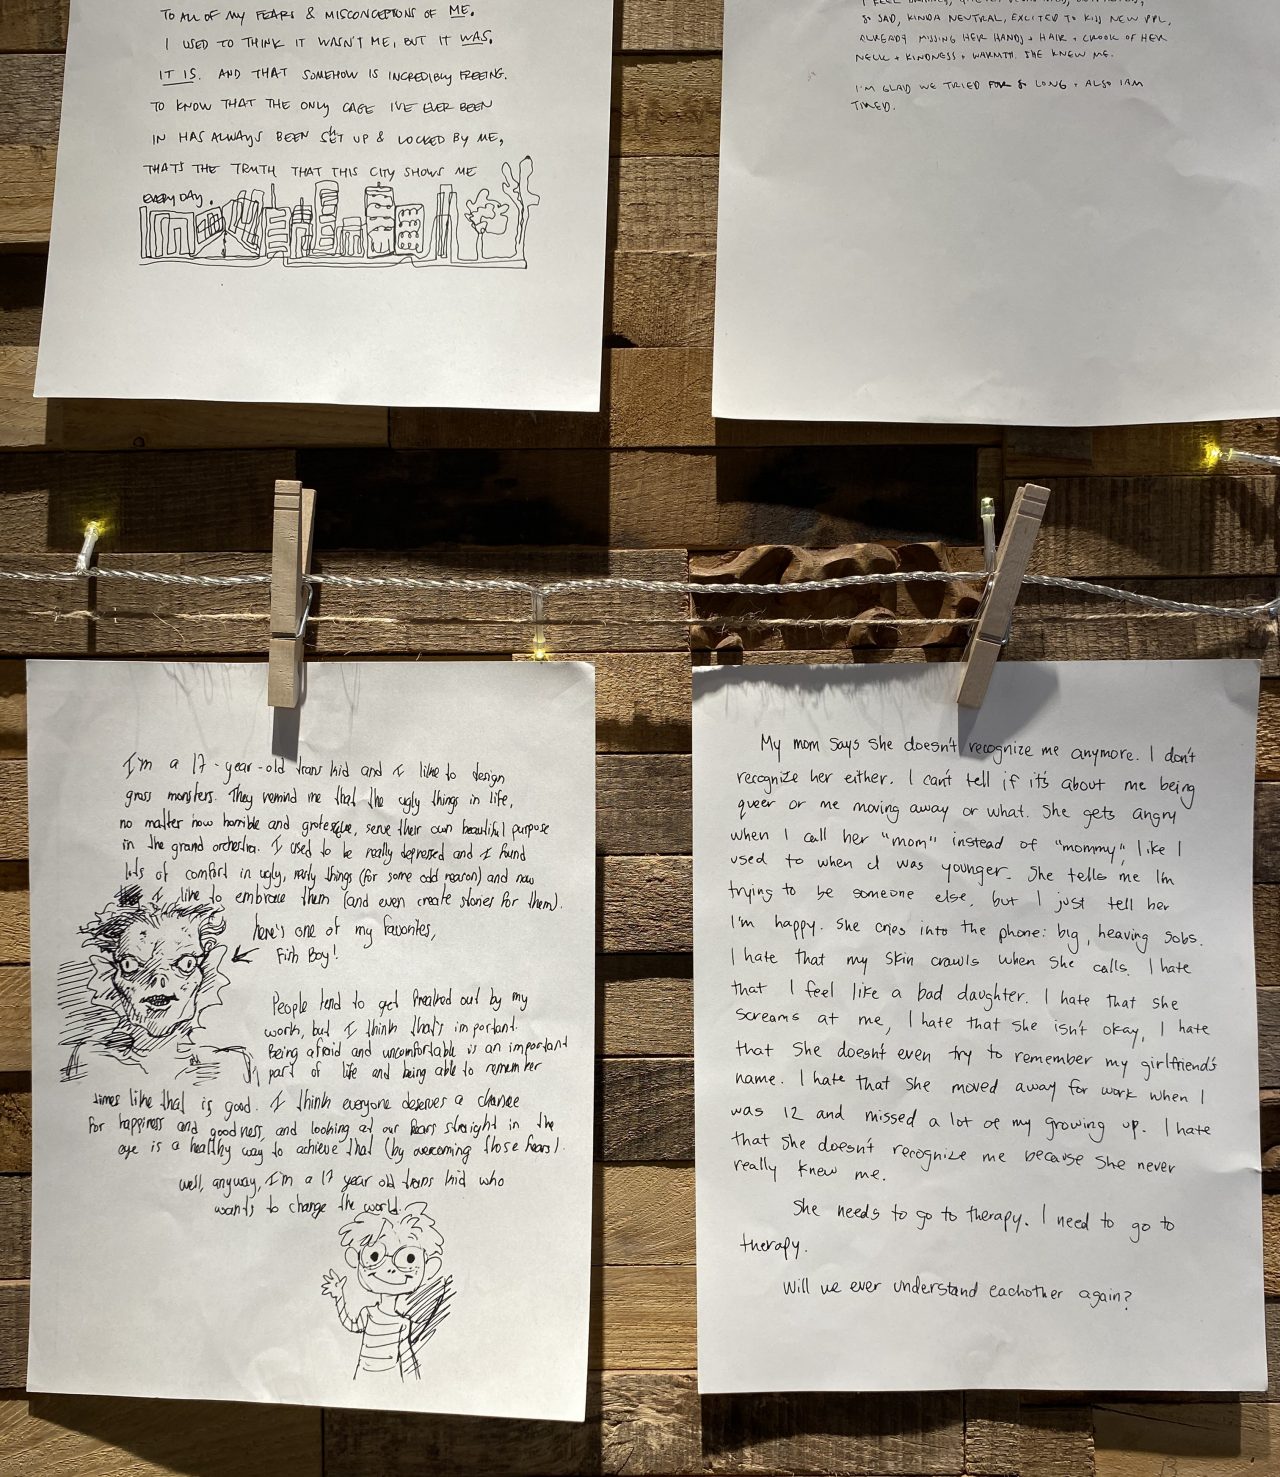 TO ALL OF MY FEARS & MISCONCEPTIONS OF ME.
I USED TO THINK IT WASN'T ME, BUT IT WAS.
IT IS. AND THAT SOMEHOW IS INCREDIBLY FREEING.
TO KNOW THAT THE ONLY CAGE I'VE EVER BEEN
IN HAS ALWAYS BEEN SET UP & LOCKED BY ME,
THAT'S THE TRUTH THAT THIS CITY SHOWS ME
EVERY DAY.
SO SAD, KINDA NEUTRAL, EXCITED TO KISS NEW PPL,
ALREADY MISSING HER HANDS + HAIR + CROOK OF HER
NECK + KINDNESS + WARMTH. SHE KNEW ME.
I'M GLAD WE TRIED FOR SO LONG + ALSO I AM
TIRED.
I'm a 17-year-old trans kid and I like to design
gross monsters. They remind me that the ugly things in life,
no matter how horrible and grotesque, serve their own beautiful purpose
in the grand orchestra. I used to be really depressed and I found
lots of comfort in ugly, nasty things (for some odd reason) and now
I like to embrace them (and even create stories for them).
here's one of my favorites,
Fish Boy!
People tend to get freaked out by my
work, but I think that's important.
Being afraid and uncomfortable is an important
part of life and being able to remember
times like that is good. I think everyone deserves a chance
for happiness and goodness, and looking at our fears straight in the
eye is a healthy way to achieve that (by overcoming those fears).
well, anyway, I'm a 17 year old trans kid who
wants to change the world.
My mom says she doesn't recognize me anymore. I don't
recognize her either. I can't tell if it's about me being
queer or me moving away or what. She gets angry
when I call her "mom" instead of "mommy", like I
used to when I was younger. She tells me I'm
trying to be someone else, but I just tell her
I'm happy. She cries into the phone: big, heaving sobs.
I hate that my skin crawls when she calls. I hate
that I feel like a bad daughter. I hate that she
screams at me, I hate that she isn't okay, I hate
that she doesn't even try to remember my girlfriend's
name. I hate that she moved away for work when I
was 12 and missed a lot of my growing up. I hate
that she doesn't recognize me because she never
really knew me.
She needs to go to therapy. I need to go to
therapy.
Will we ever understand eachother again?